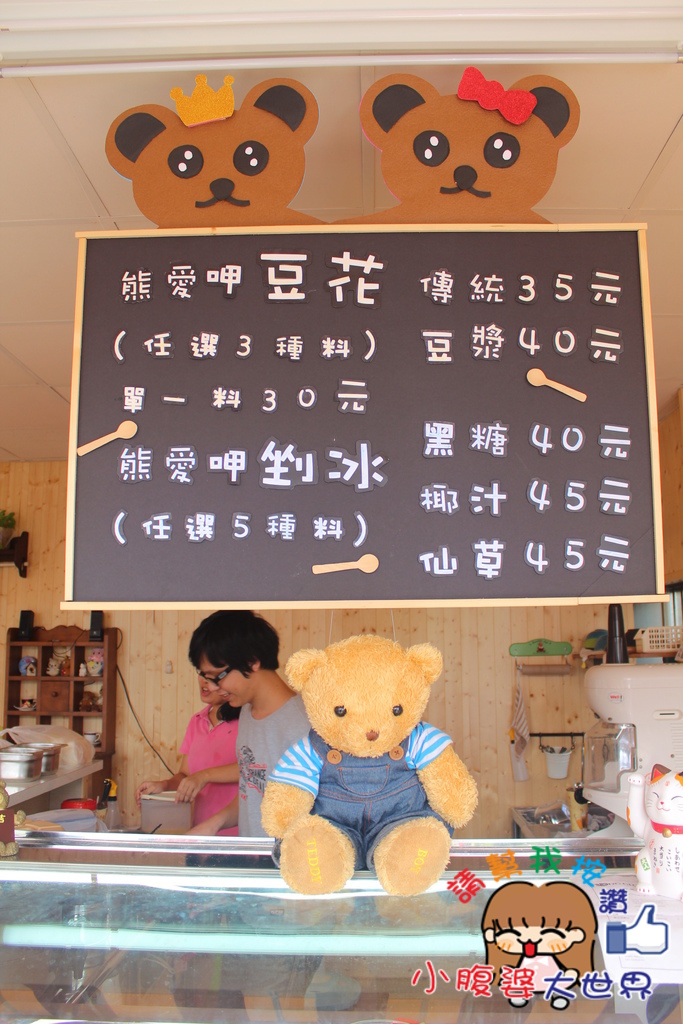 熊愛呷豆花
(任選3種料)
單一料30元
熊愛呷剉冰
(任選5種料)
傳統35元
豆漿40元
黑糖40元
椰汁45元
仙草45元
TEDDY
請幫我按
讚
小腹婆大世界